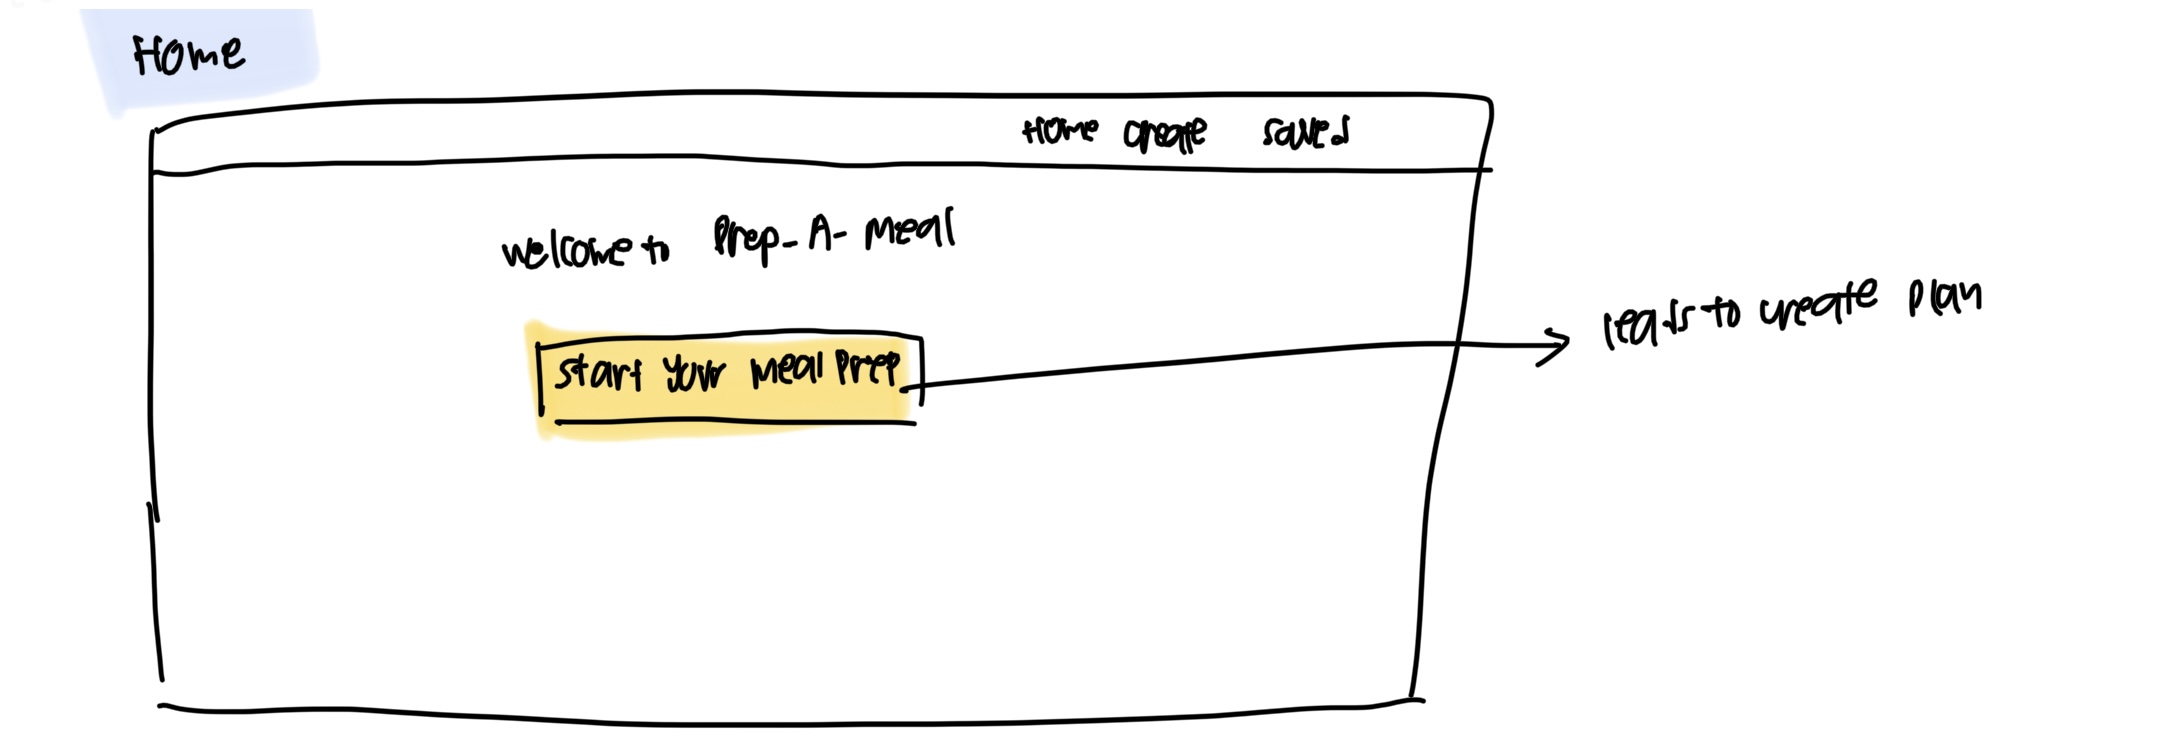 Home
Home create saved
welcome to Prep-A-Meal
start your meal prep
leads to create plan